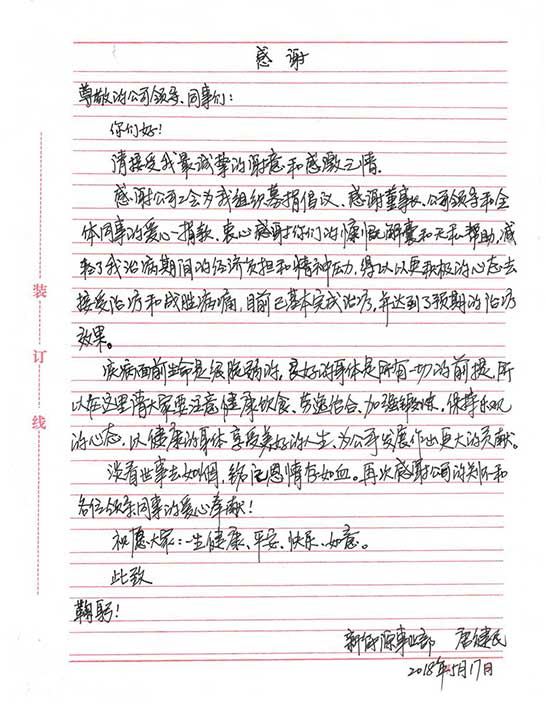 感谢
尊敬的公司领导、同事们:
你们好!
请接受我最诚挚的谢意和感激之情.
感谢公司工会为我组织募捐倡议、感谢董事长、公司领导和全
体同事的爱心捐款、衷心感谢你们的慷慨解囊和无私帮助,减
轻了我治病期间的经济负担和精神压力,得以以更积极的心态去
接受治疗和战胜病痛,目前已基本完成治疗,并达到了预期的治疗
效果。
疾病面前生命是很脆弱的,良好的身体是所有一切的前提,所
以在这里请大家要注意健康饮食、劳逸结合、加强锻炼、保持乐观
的心态,以健康的身体享受美好的人生、为公司发展作出更大的贡献。
淡看世事去如烟,铭记恩情存如血。再次感谢公司的关怀和
各位领导同事的爱心奉献!
祝愿大家:一生健康、平安、快乐、如意。
此致
鞠躬!
新能源事业部 唐健民
2018年5月17日
装
订
线